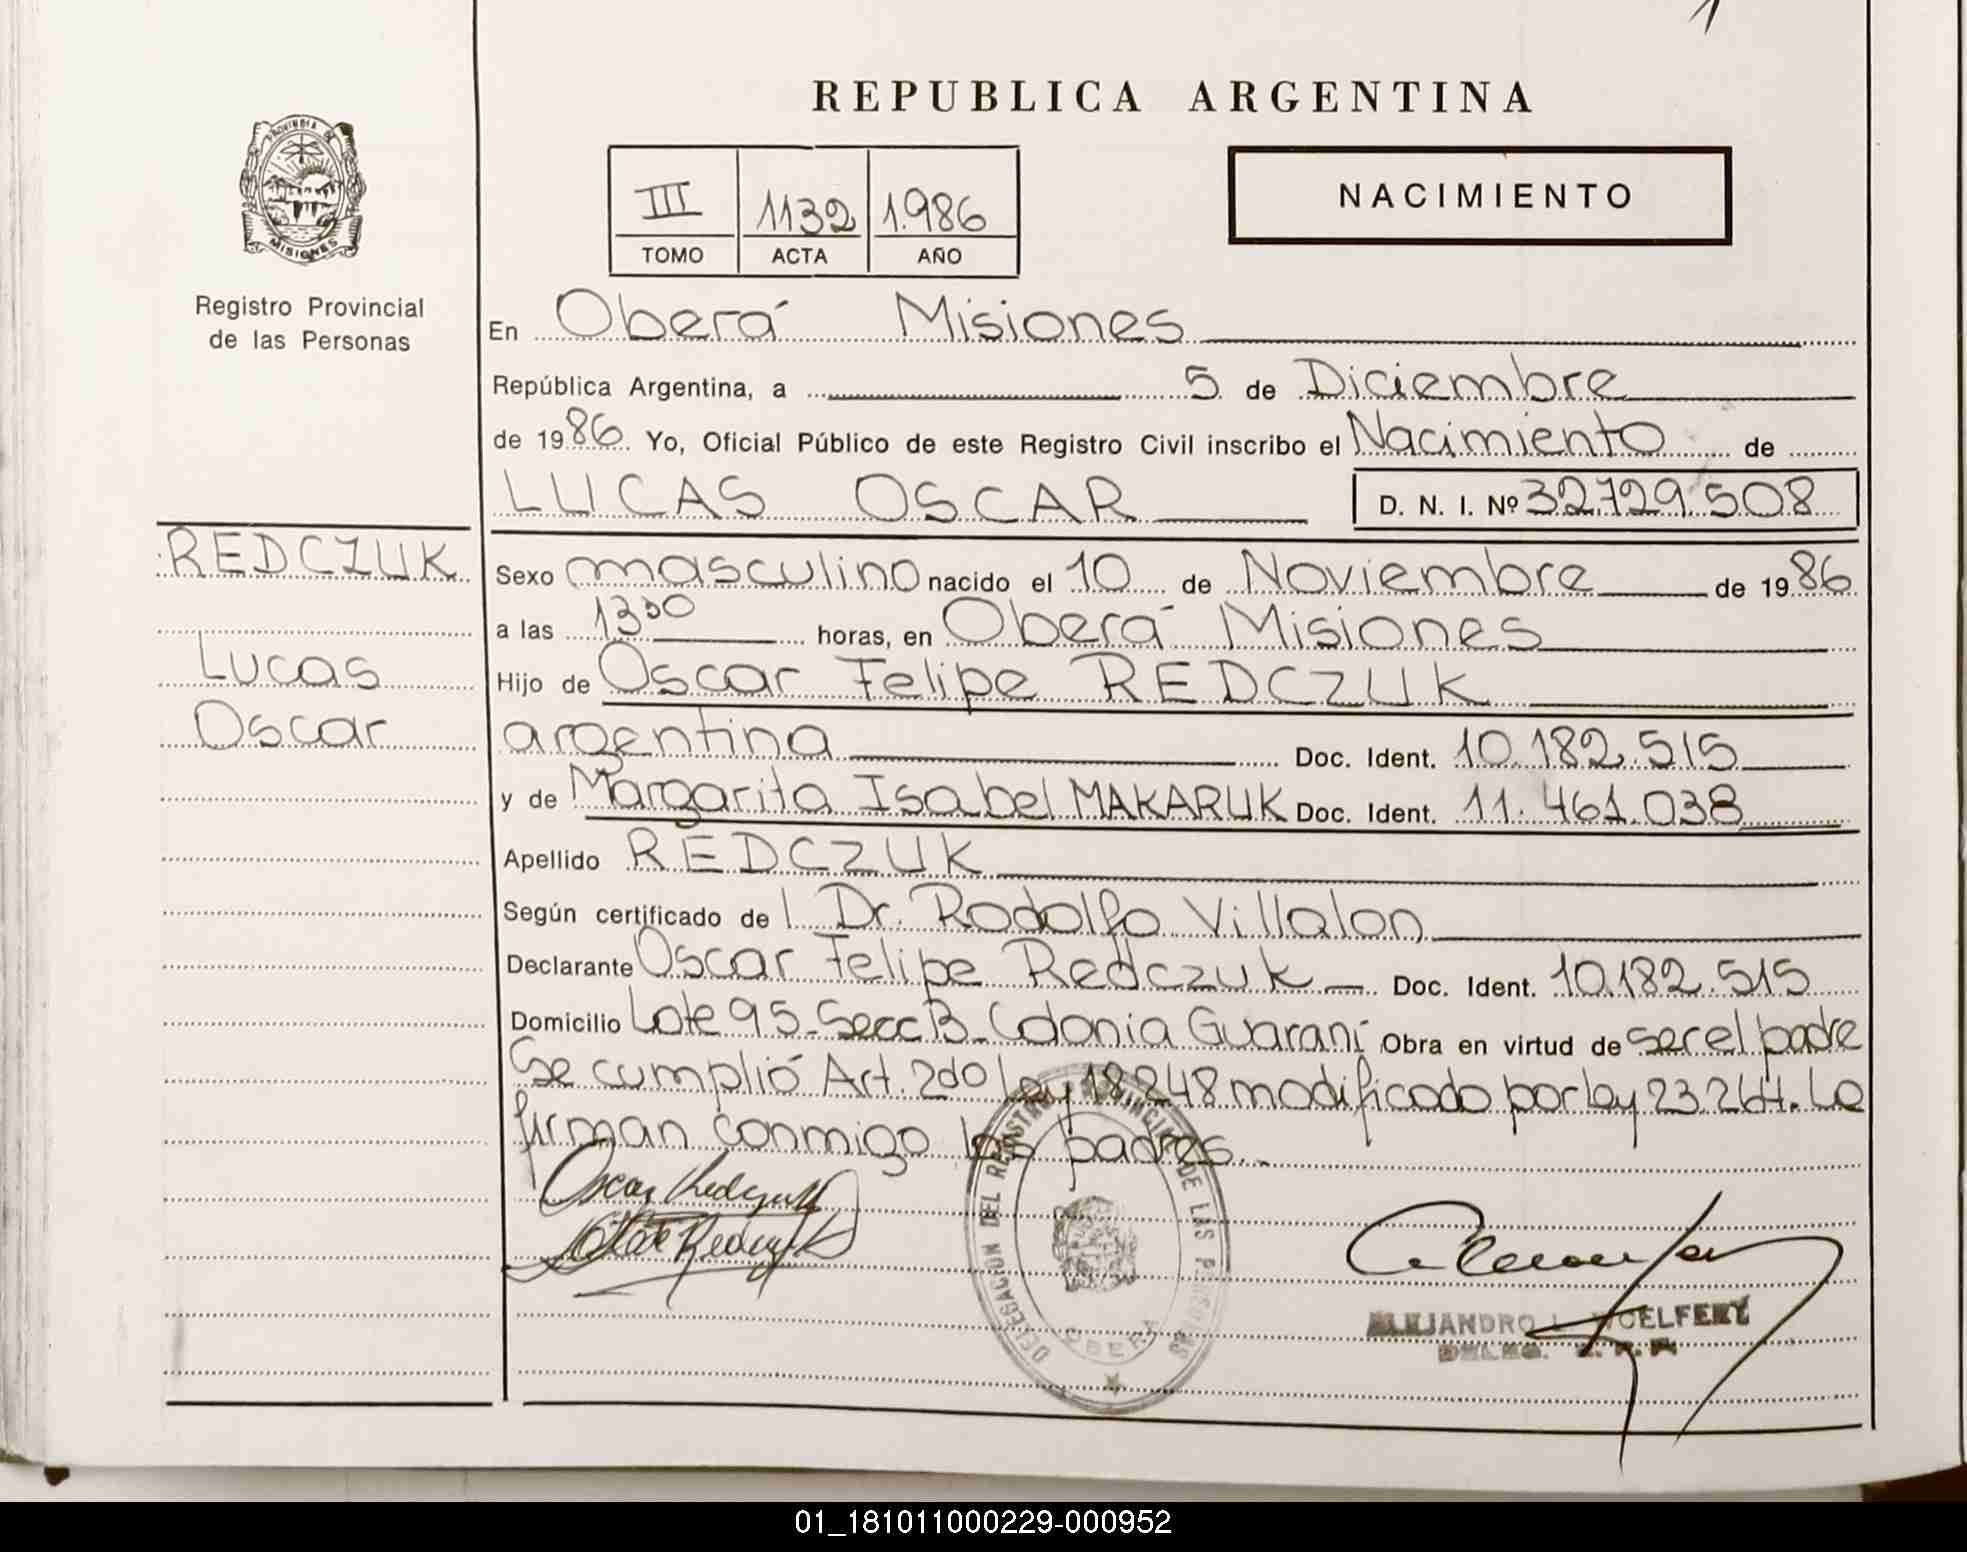 1
REPUBLICA ARGENTINA
PROVINCIA DE
MISIONES
Registro Provincial
de las Personas
III 1132 1.986
TOMO ACTA AÑO
NACIMIENTO
En Oberá Misiones
República Argentina, a 5 de Diciembre
de 1986 Yo, Oficial Público de este Registro Civil inscribo el Nacimiento de
LUCAS OSCAR D. N. I. Nº 32.729.508
REDCZUK
Lucas
Oscar
Sexo masculino nacido el 10 de Noviembre de 1986
a las 13³⁰ horas, en Oberá Misiones
Hijo de Oscar Felipe REDCZUK
argentina Doc. Ident. 10.182.515
y de Margarita Isabel MAKARUK Doc. Ident. 11.461.038
Apellido REDCZUK
Según certificado de l Dr. Rodolfo Villalon
Declarante Oscar Felipe Redczuk Doc. Ident. 10.182.515
Domicilio Lote 95-Secc B- Colonia Guaraní Obra en virtud de ser el padre
Se cumplió Art. 2do ley 18.248 modificado por ley 23.264. Lo
firman conmigo los padres.
Oscar Redczuk
DELEGACION DEL REGISTRO PROVINCIAL DE LAS PERSONAS
OBERA
ALEJANDRO L.
DELEG. R. P.
01_181011000229-000952